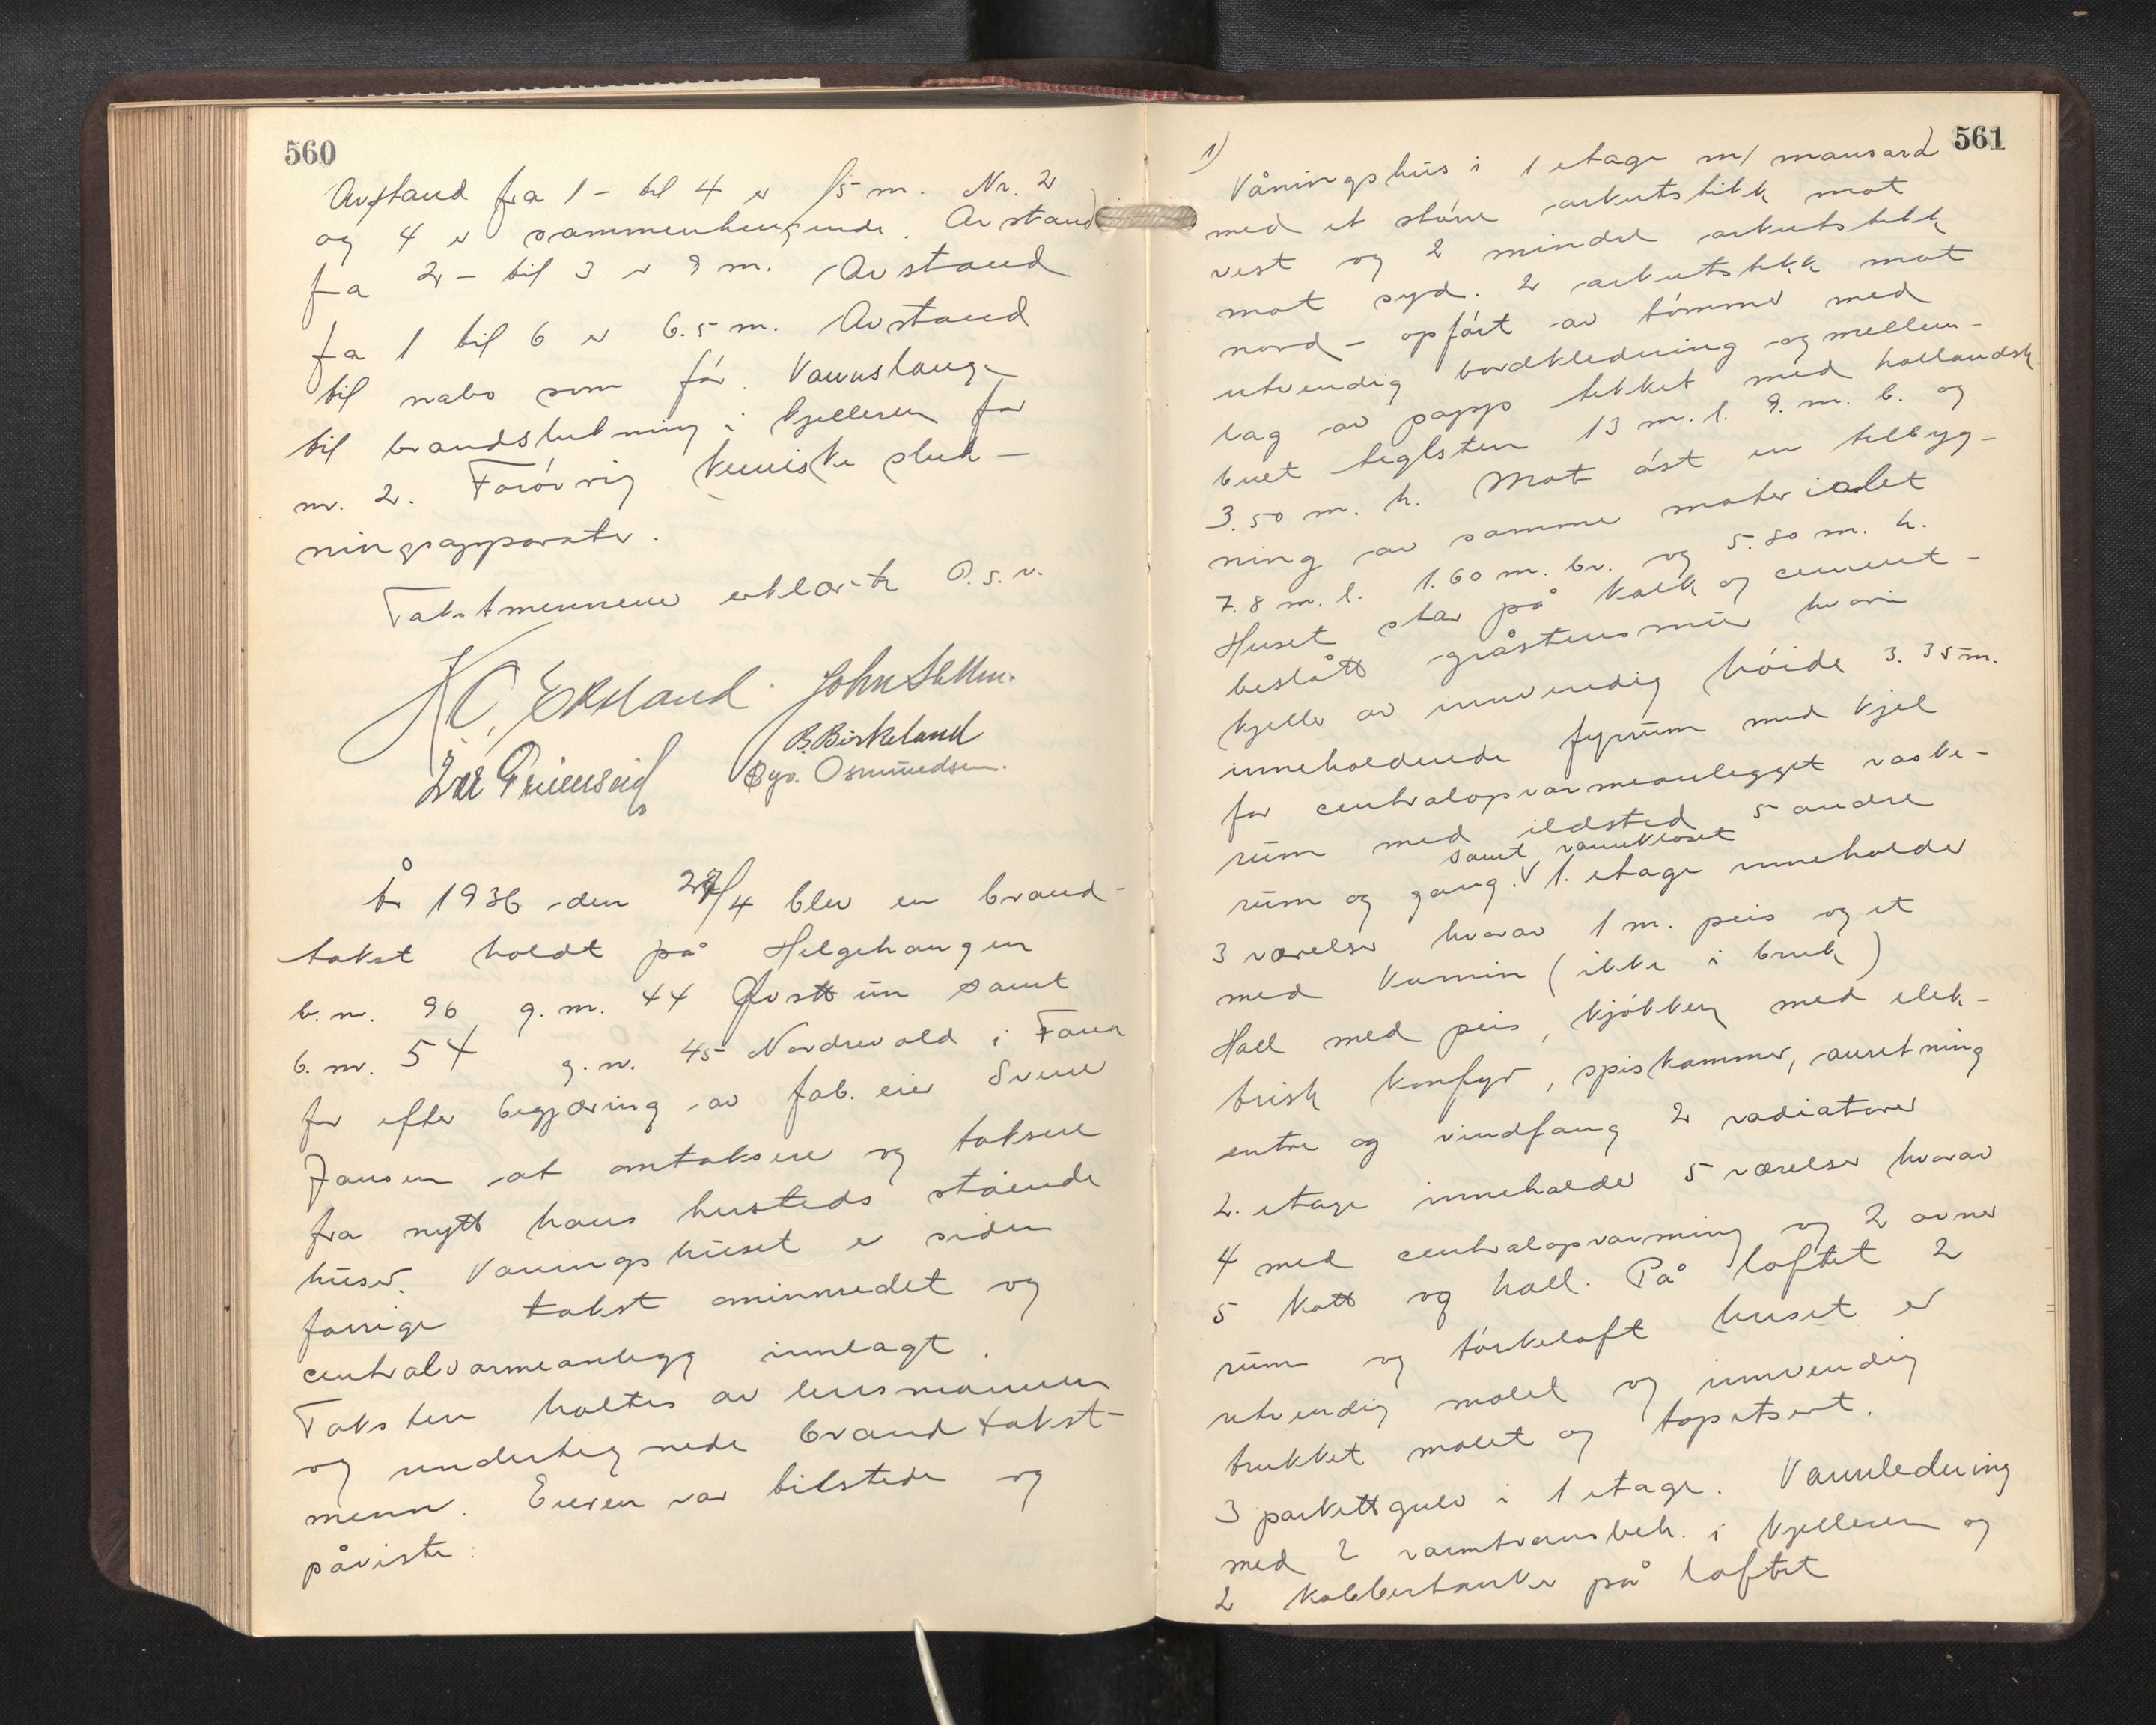 560
Avstand fra 1 - til 4 er 15 m. Nr. 2
og 4 er sammenhengende. Avstand
fra 2 - til 3 er 9 m. Avstand
fra 1 til 6 er 6.5 m. Avstand
til nabo som før. Vannslange
til brandslukning i kjelleren for
nr. 2. Forøvrig kemiske sluk-
ningsapparater.
Takstmennene erklærte O.s.v.
Ekeland. John
B. Birkeland
Osmundsen.
År 1936 den /4 blev en brand-
takst holdt på Helgehaugen
b.nr. 96 g.nr. 44 samt
b.nr. 54 g.nr. 45 Nordrevold i Fana
for efter begjæring av fab. eier Sverre
Jansen at omtaksere og taksere
fra nytt hans husteds stående
huser. Vaningshuset er siden
forrige takst ominnredet og
centralvarmeanlegg innlagt.
Taksten holtes av lensmannen
og undertegnede brandtakst-
menn. Eieren var tilstede og
påviste:
561
1)
Våningshus i 1 etage m/ mansard
med et større arkutstikk mot
vest og 2 mindre arkutstikk
mot syd. 2 arkutstikk mot
nord - opført av tømmer med
utvendig bordkledning og mellem-
lag av papp tekket med hollandsk
buet teglsten 13 m. l. 9. m. b. og
3.50 m. h. Mot øst en tilbyg-
ning av samme materialet
7.8 m. l. 1.60 m. br. og 5.80 m. h.
Huset står på kalk og cement-
beslått gråstensmur hvori
kjeller av innvendig høide 3.35 m.
inneholdende fyrrum med kjel
for centralopvarmeanlegget vaske-
rum med ildsted 5 andre
samt vannkloset
rum og gang. V 1. etage inneholder
3 værelser hvorav 1 m. peis og et
med kamin (ikke i bruk)
Hall med peis, kjøkken med elek-
trisk komfyr, spiskammer, anretning
entre og vindfang 2 radiatorer
2. etage inneholder 5 værelser hvorav
4 med centralopvarming og 2 ovner
5 kott og hall. På loftet 2
rum og tørkeloft huset er
utvendig malet og innvendig
trukket malet og tapetsert.
3 parkettgulv i 1 etage. Vannledning
med 2 varmtvansbeh. i kjelleren og
2 kobbertanker på loftet